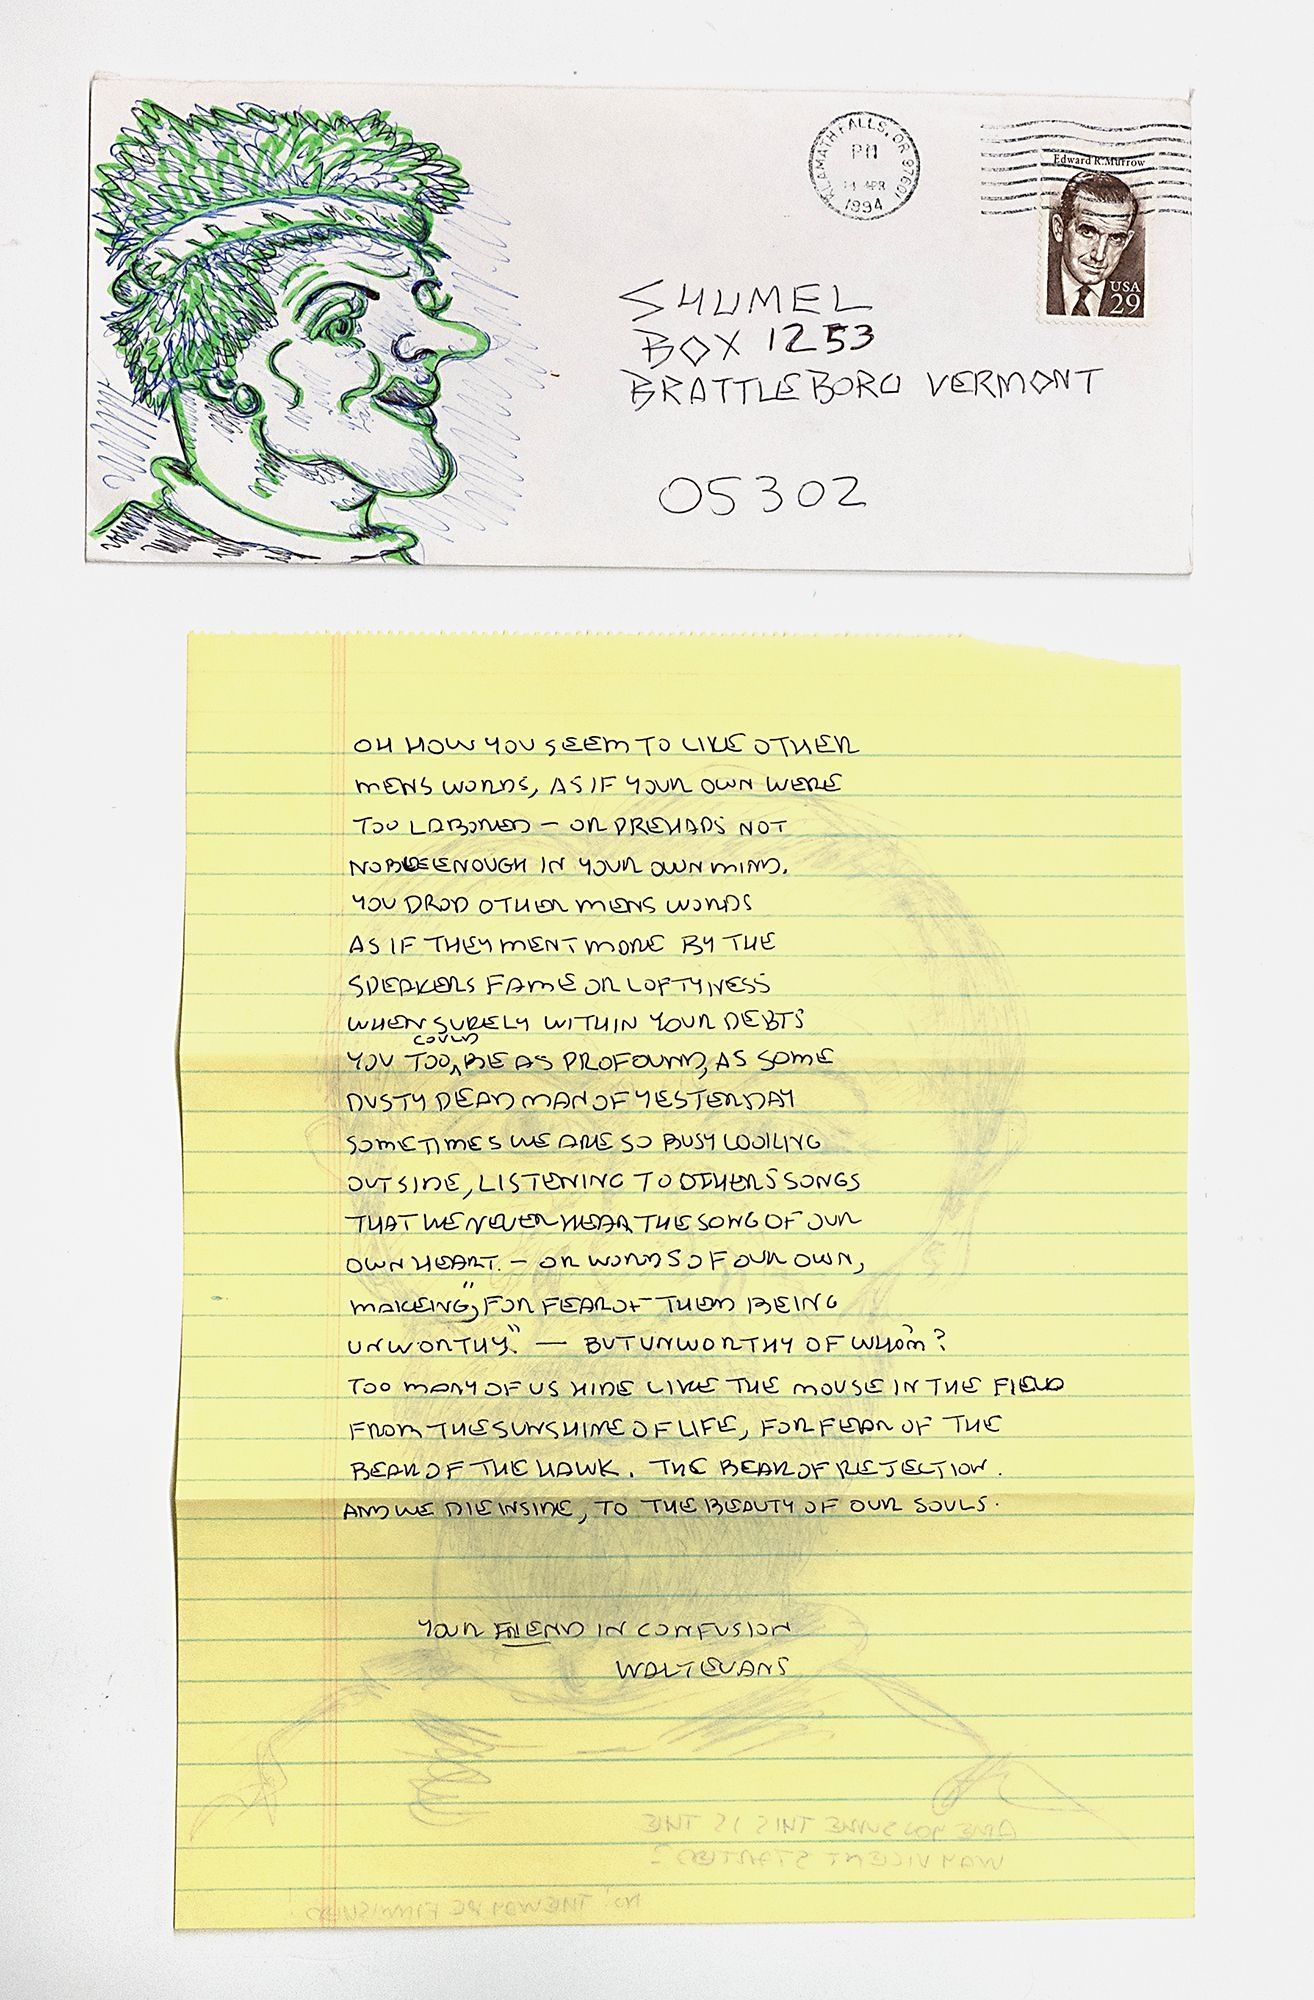 KLAMATH FALLS, OR 97601
PM
APR
1994
Edward R. Murrow
USA
29
SHUMEL
BOX 1253
BRATTLEBORO VERMONT
05302
OH HOW YOU SEEM TO LIKE OTHER
MENS WORDS, AS IF YOUR OWN WERE
TOO LABORED — OR PREHAPS NOT
NOBLE ENOUGH IN YOUR OWN MIND.
YOU DROP OTHER MENS WORDS
AS IF THEY MENT MORE BY THE
SPEAKERS FAME OR LOFTYNESS
WHEN SURELY WITHIN YOUR DEBTS
YOU TOO COULD BE AS PROFOUND, AS SOME
DUSTY DEAD MAN OF YESTERDAY
SOMETIMES WE ARE SO BUSY LOOKING
OUTSIDE, LISTENING TO OTHERS SONGS
THAT WE NEVER HEAR THE SONG OF OUR
OWN HEART. — OR WORDS OF OUR OWN,
MAKEING", FOR FEAR OF THEM BEING
UNWORTHY." — BUT UNWORTHY OF WHOM?
TOO MANY OF US HIDE LIKE THE MOUSE IN THE FIELD
FROM THE SUNSHINE OF LIFE, FOR FEAR OF THE
BEAR OF THE HAWK. THE BEAR OF REJECTION.
AND WE DIE INSIDE, TO THE BEAUTY OF OUR SOULS.
YOUR FRIEND IN CONFUSION
WALT EVANS
ARE YOU SURE THIS IS THE
WAY VICENT STARTED?
NO! THE WAY HE FINNISHED!